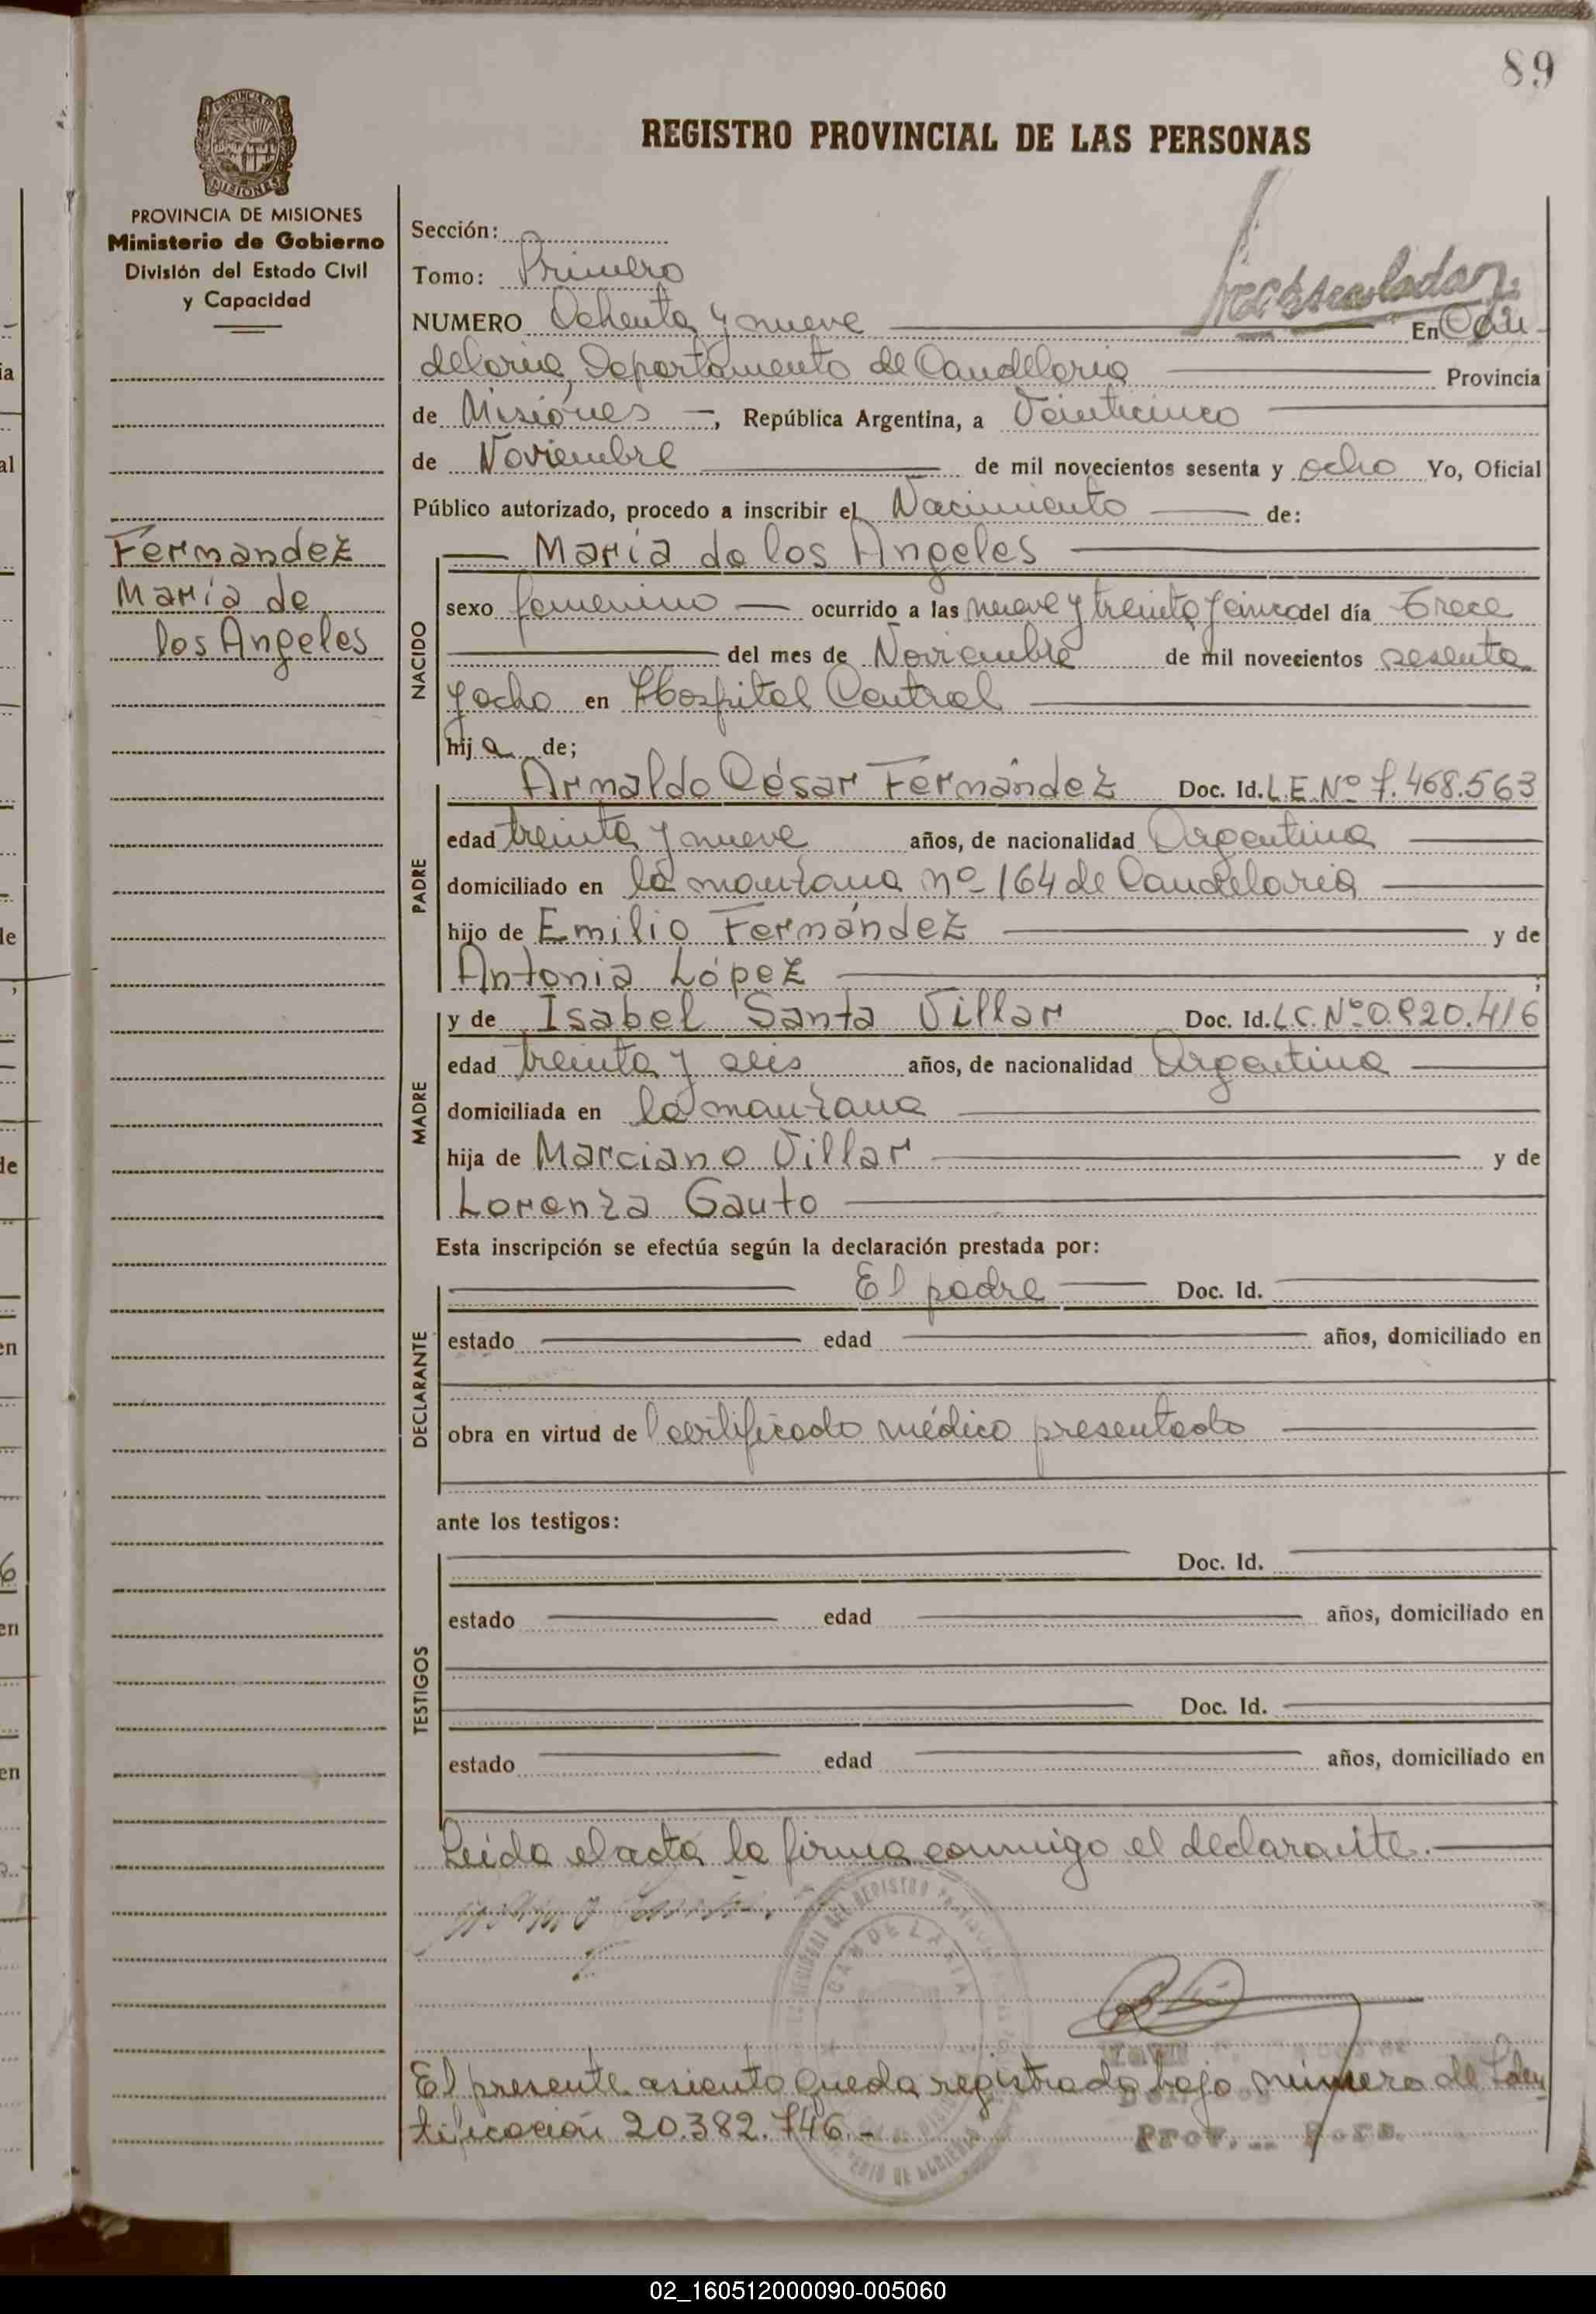 89
REGISTRO PROVINCIAL DE LAS PERSONAS
PROVINCIA DE MISIONES
Ministerio de Gobierno
División del Estado Civil
y Capacidad
Fernandez
María de
los Angeles
Sección:
Tomo: Primero
NUMERO Ochenta y nueve En Can
delaria, Departamento de Candelaria Provincia
de Misiones, República Argentina, a Veinticinco
de Noviembre de mil novecientos sesenta y ocho Yo, Oficial
Público autorizado, procedo a inscribir el Nacimiento de:
María de los Angeles
NACIDO
sexo femenino ocurrido a las nueve y treinta y cinco del día trece
del mes de Noviembre de mil novecientos sesenta
y ocho en Hospital Central
hija de;
PADRE
Arnaldo César Fernández Doc. Id. L.E. Nº 7.468.563
edad treinta y nueve años, de nacionalidad Argentina
domiciliado en la manzana nº 164 de Candelaria
hijo de Emilio Fernández y de
Antonia López ;
MADRE
y de Isabel Santa Villar Doc. Id. L.C. Nº
edad treinta y seis años, de nacionalidad Argentina
domiciliada en la manzana
hija de Marciano Villar y de
Lorenza Gauto
Esta inscripción se efectúa según la declaración prestada por:
DECLARANTE
El padre Doc. Id.
estado edad años, domiciliado en
obra en virtud de certificado médico presentado
ante los testigos:
TESTIGOS
Doc. Id.
estado edad años, domiciliado en
Doc. Id.
estado edad años, domiciliado en
Leida el acta la firma conmigo el declarante.
CANDELARIA
El presente asiento queda registrado bajo número de Iden
tificación 20.382.746.-
02_160512000090-005060